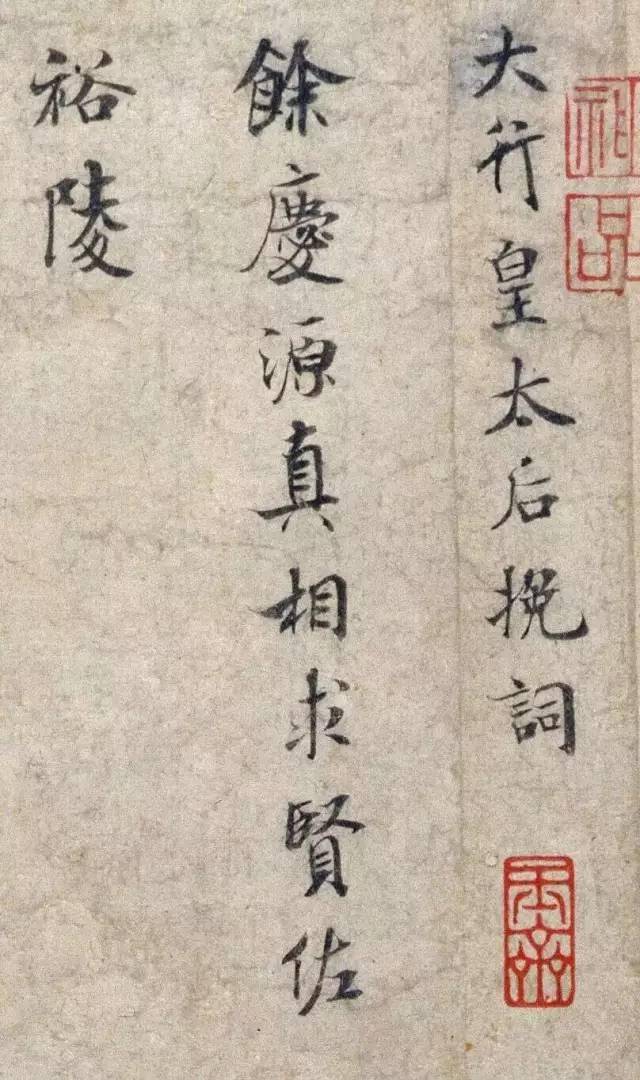 大行皇太后挽詞
餘慶源真相求賢佐
裕陵